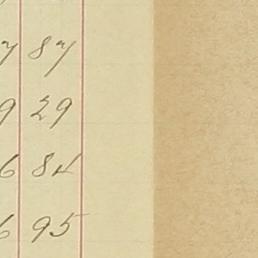 7 87
9 29
6 84
6 95